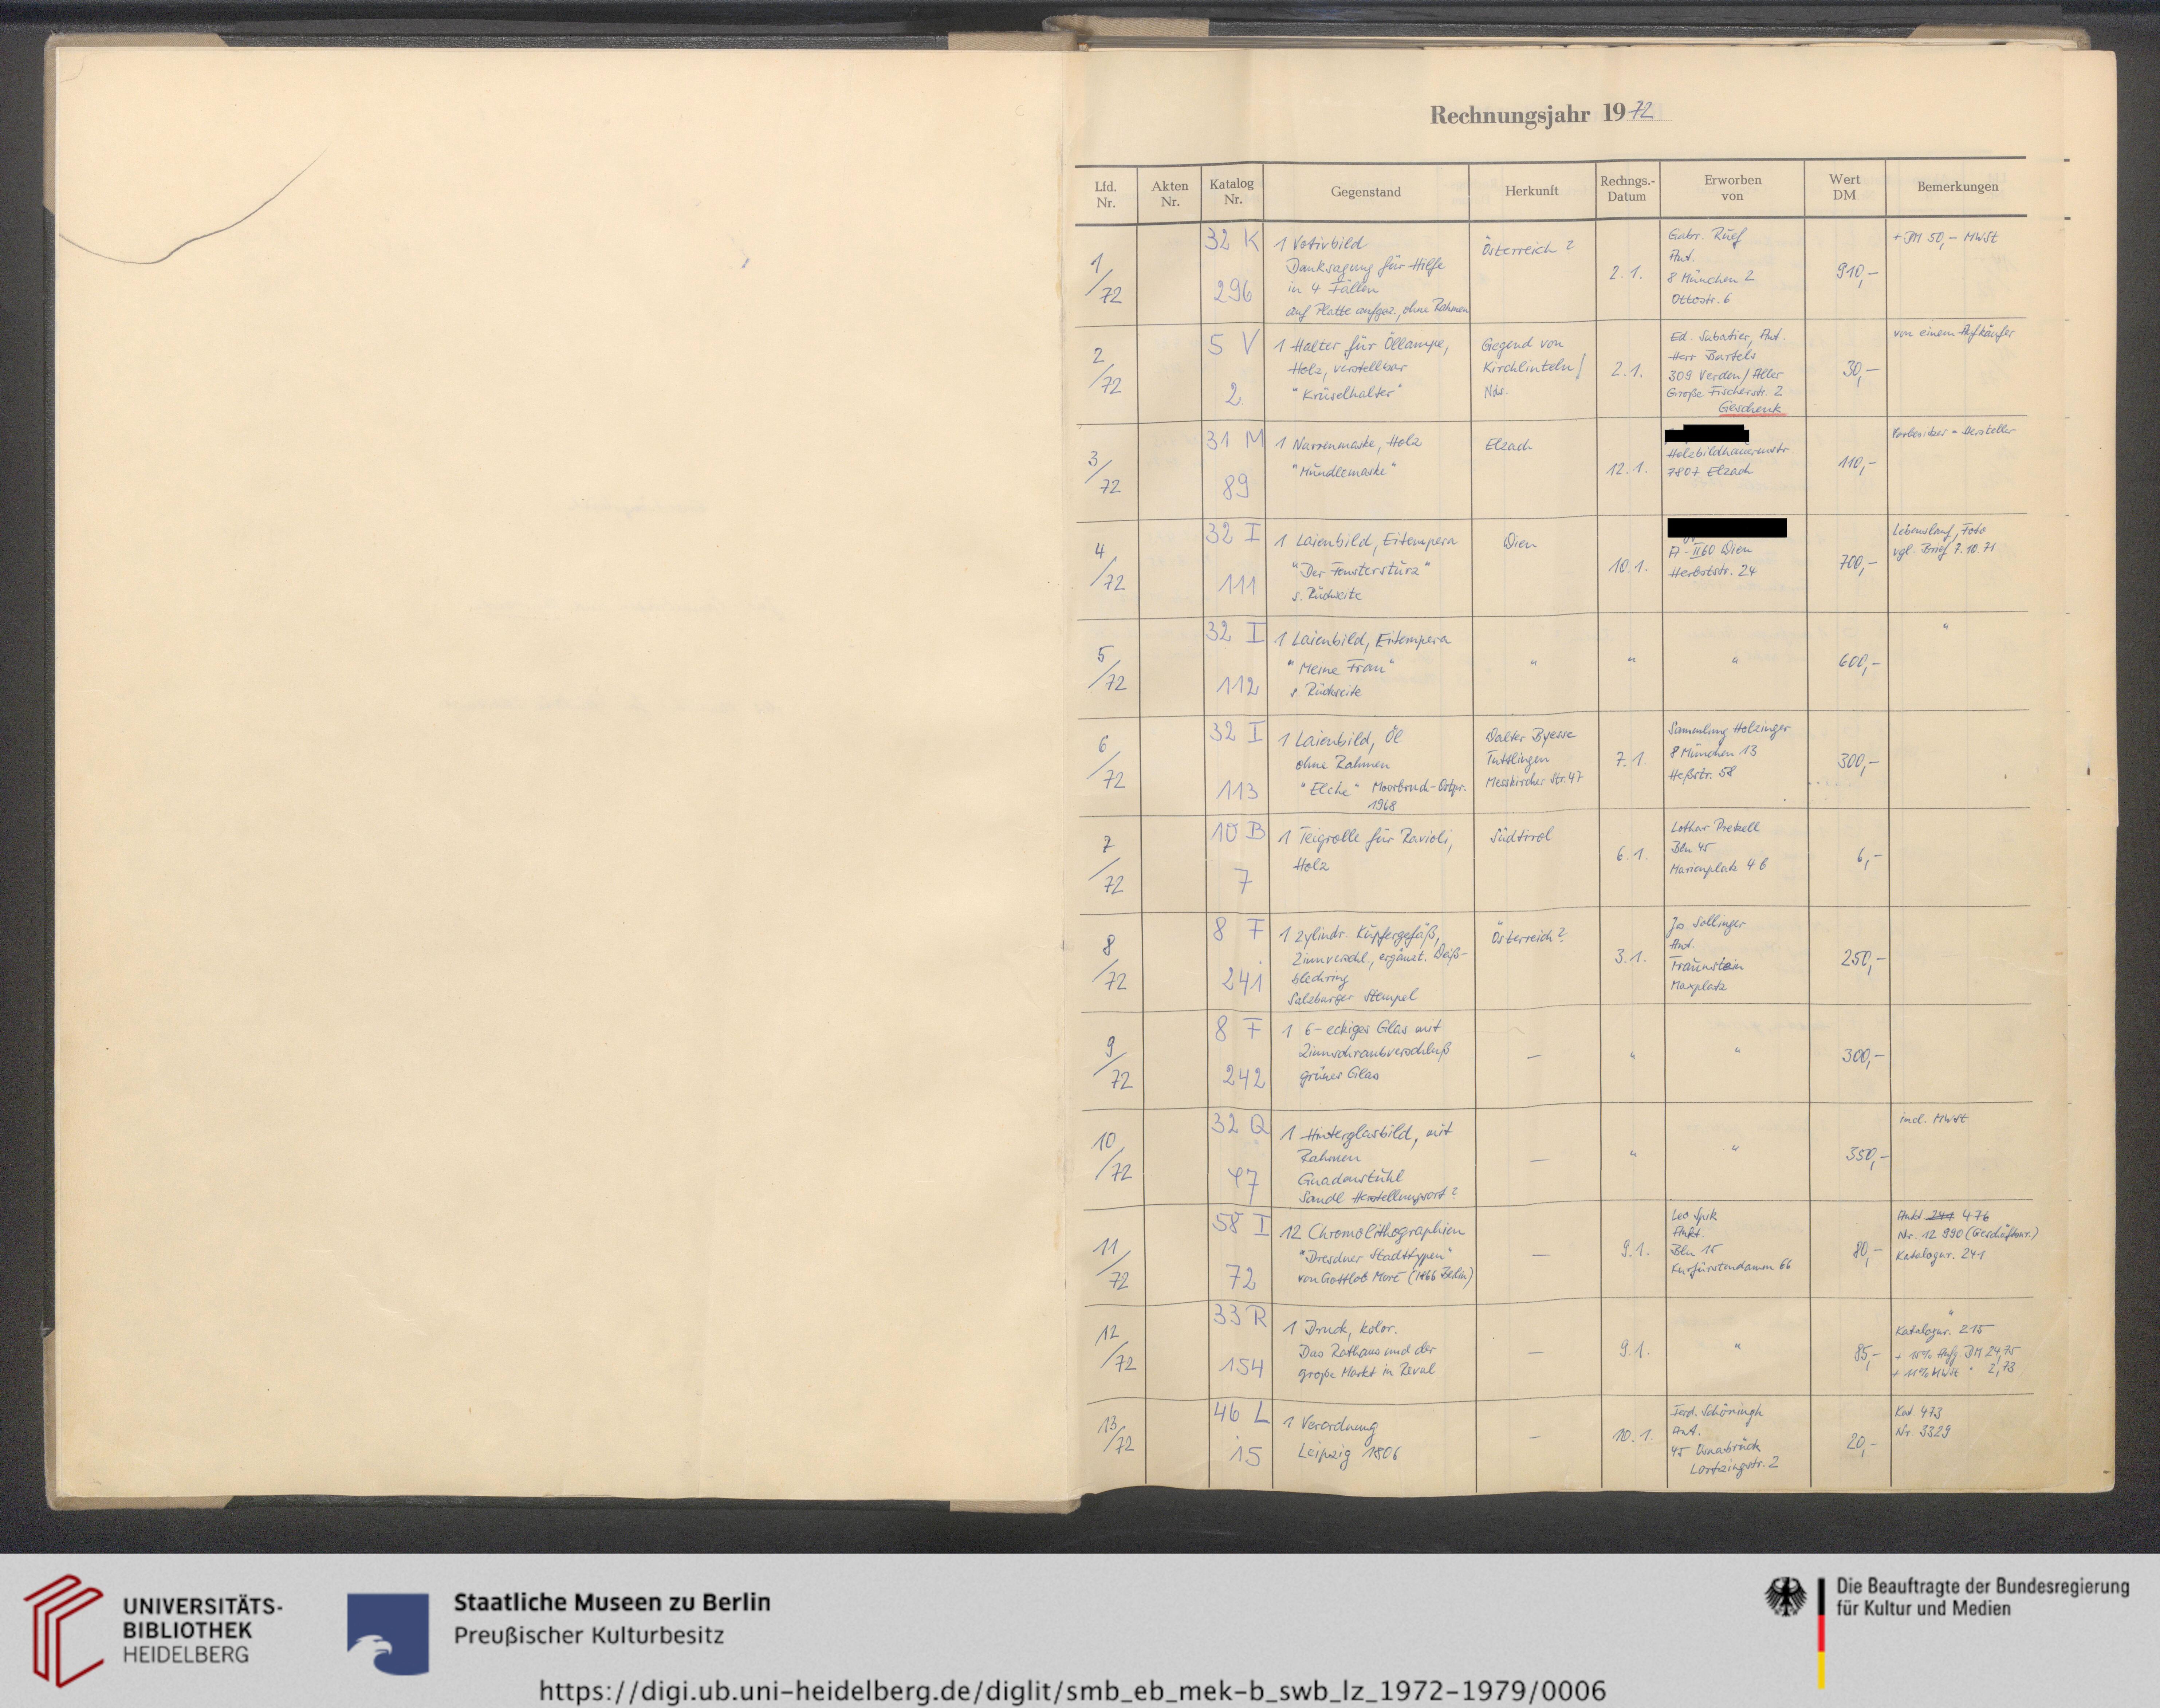 Rechnungsjahr 1972
Lfd. Nr.
Akten Nr.
Katalog Nr.
Gegenstand
Herkunft
Rechngs.- Datum
Erworben von
Wert DM
Bemerkungen
1/72
32 K
296
1 Votivbild
Danksagung für Hilfe
in 4 Fällen
auf Platte aufgez., ohne Rahmen
Österreich?
2.1.
Gabr. Ruef
Ant.
8 München 2
Ottostr. 6
910,-
+ DM 50,- MWSt
2/72
5 V
2
1 Halter für Öllampe,
Holz, verstellbar
"Krüselhalter"
Gegend von
Kirchlinteln/
Nds.
2.1.
Ed. Sabatier, Ant.
Herr Bartels
309 Verden/Aller
Große Fischerstr. 2
Geschenk
30,-
von einem Aufkäufer
3/72
31 M
89
1 Narrenmaske, Holz
"Mundlemaske"
Elzach
12.1.
Holzbildhauermstr.
7807 Elzach
110,-
Vorbesitzer = Hersteller
4/72
32 I
111
1 Laienbild, Eitempera
"Der Fenstersturz"
s. Rückseite
Wien
10.1.
A-1160 Wien
Herbststr. 24
700,-
Lebenslauf, Foto
vgl. Brief 7.10.71
5/72
32 I
112
1 Laienbild, Eitempera
"Meine Frau"
s Rückseite
"
"
"
600,-
"
6/72
32 I
113
1 Laienbild, Öl
ohne Rahmen
"Elche" Moorbruch-Ostpr.
1968
Walter Byesse
Tuttlingen
Messkircher Str. 47
7.1.
Sammlung Holzinger
8 München 13
Heßstr. 58
300,-
7/72
10 B
7
1 Teigrolle für Ravioli,
Holz
Südtirol
6.1.
Lothar Pretzell
Bln 45
Marienplatz 4 b
6,-
8/72
8 F
241
1 zylindr. Kupfergefäß,
Zinnverschl., ergänzt. Weiß-
blechring
Salzburger Stempel
Österreich?
3.1.
Jos Sollinger
Ant.
Traunstein
Maxplatz
250,-
9/72
8 F
242
1 6-eckiges Glas mit
Zinnschraubverschluß
grünes Glas
—
"
"
300,-
10/72
32 Q
47
1 Hinterglasbild, mit
Rahmen
Gnadenstuhl
Sandl Herstellungsort?
—
"
"
350,-
incl. MWSt
11/72
58 I
72
12 Chromolithographien
"Dresdner Stadttypen"
von Gottlob Moré (1866 Berlin)
—
9.1.
Leo Spik
Aukt.
Bln 15
Kurfürstendamm 66
80,-
Aukt 241 476
Nr. 12 990 (Geschäftsnr.)
Katalognr. 241
12/72
33 R
154
1 Druck, kolor.
Das Rathaus und der
große Markt in Reval
—
9.1.
"
85,-
"
Katalognr. 215
+ 15% Aufg DM 24,75
+ 11% MWSt " 2,73
13/72
46 L
15
1 Verordnung
Leipzig 1806
—
10.1.
Ferd. Schöningh
Ant.
45 Osnabrück
Lortzingstr. 2
20,-
Kat. 473
Nr. 3329
UNIVERSITÄTS-
BIBLIOTHEK
HEIDELBERG
Staatliche Museen zu Berlin
Preußischer Kulturbesitz
Die Beauftragte der Bundesregierung
für Kultur und Medien
https://digi.ub.uni-heidelberg.de/diglit/smb_eb_mek-b_swb_lz_1972-1979/0006